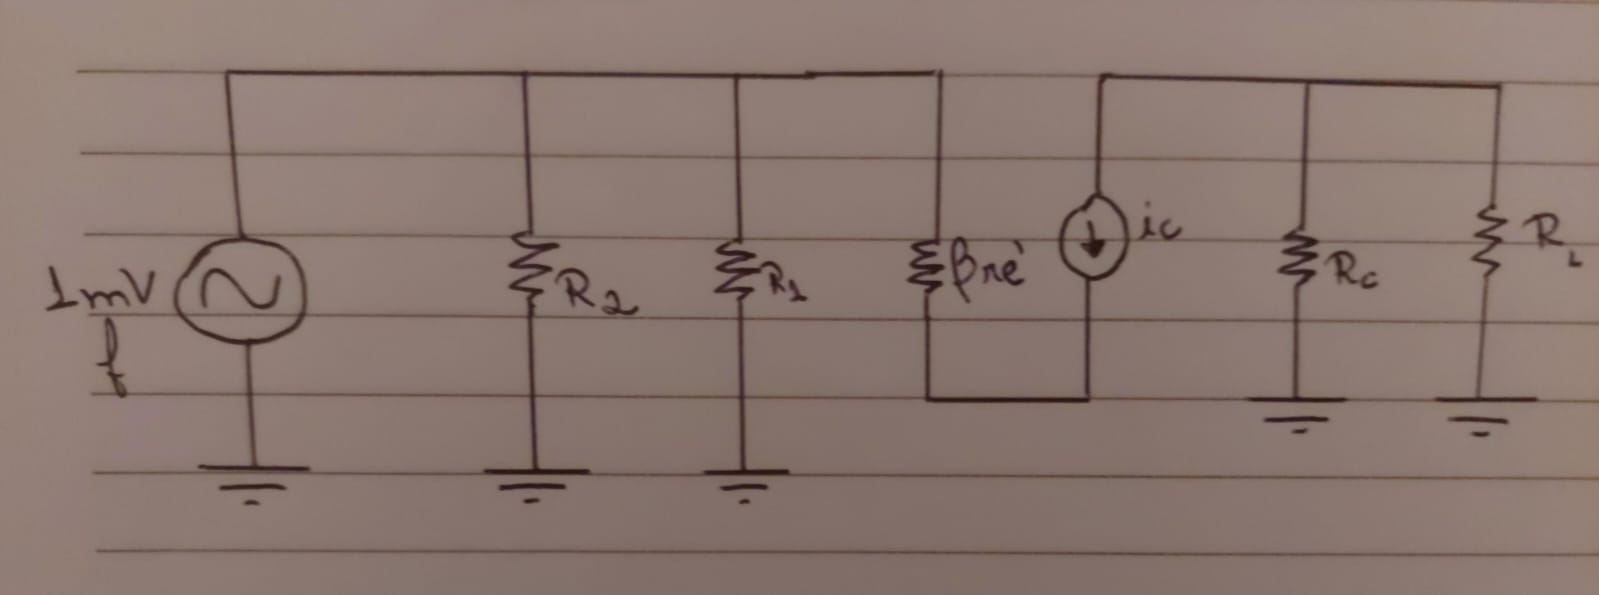 1mV
f
R2
R1
βre'
ic
Rc
RL